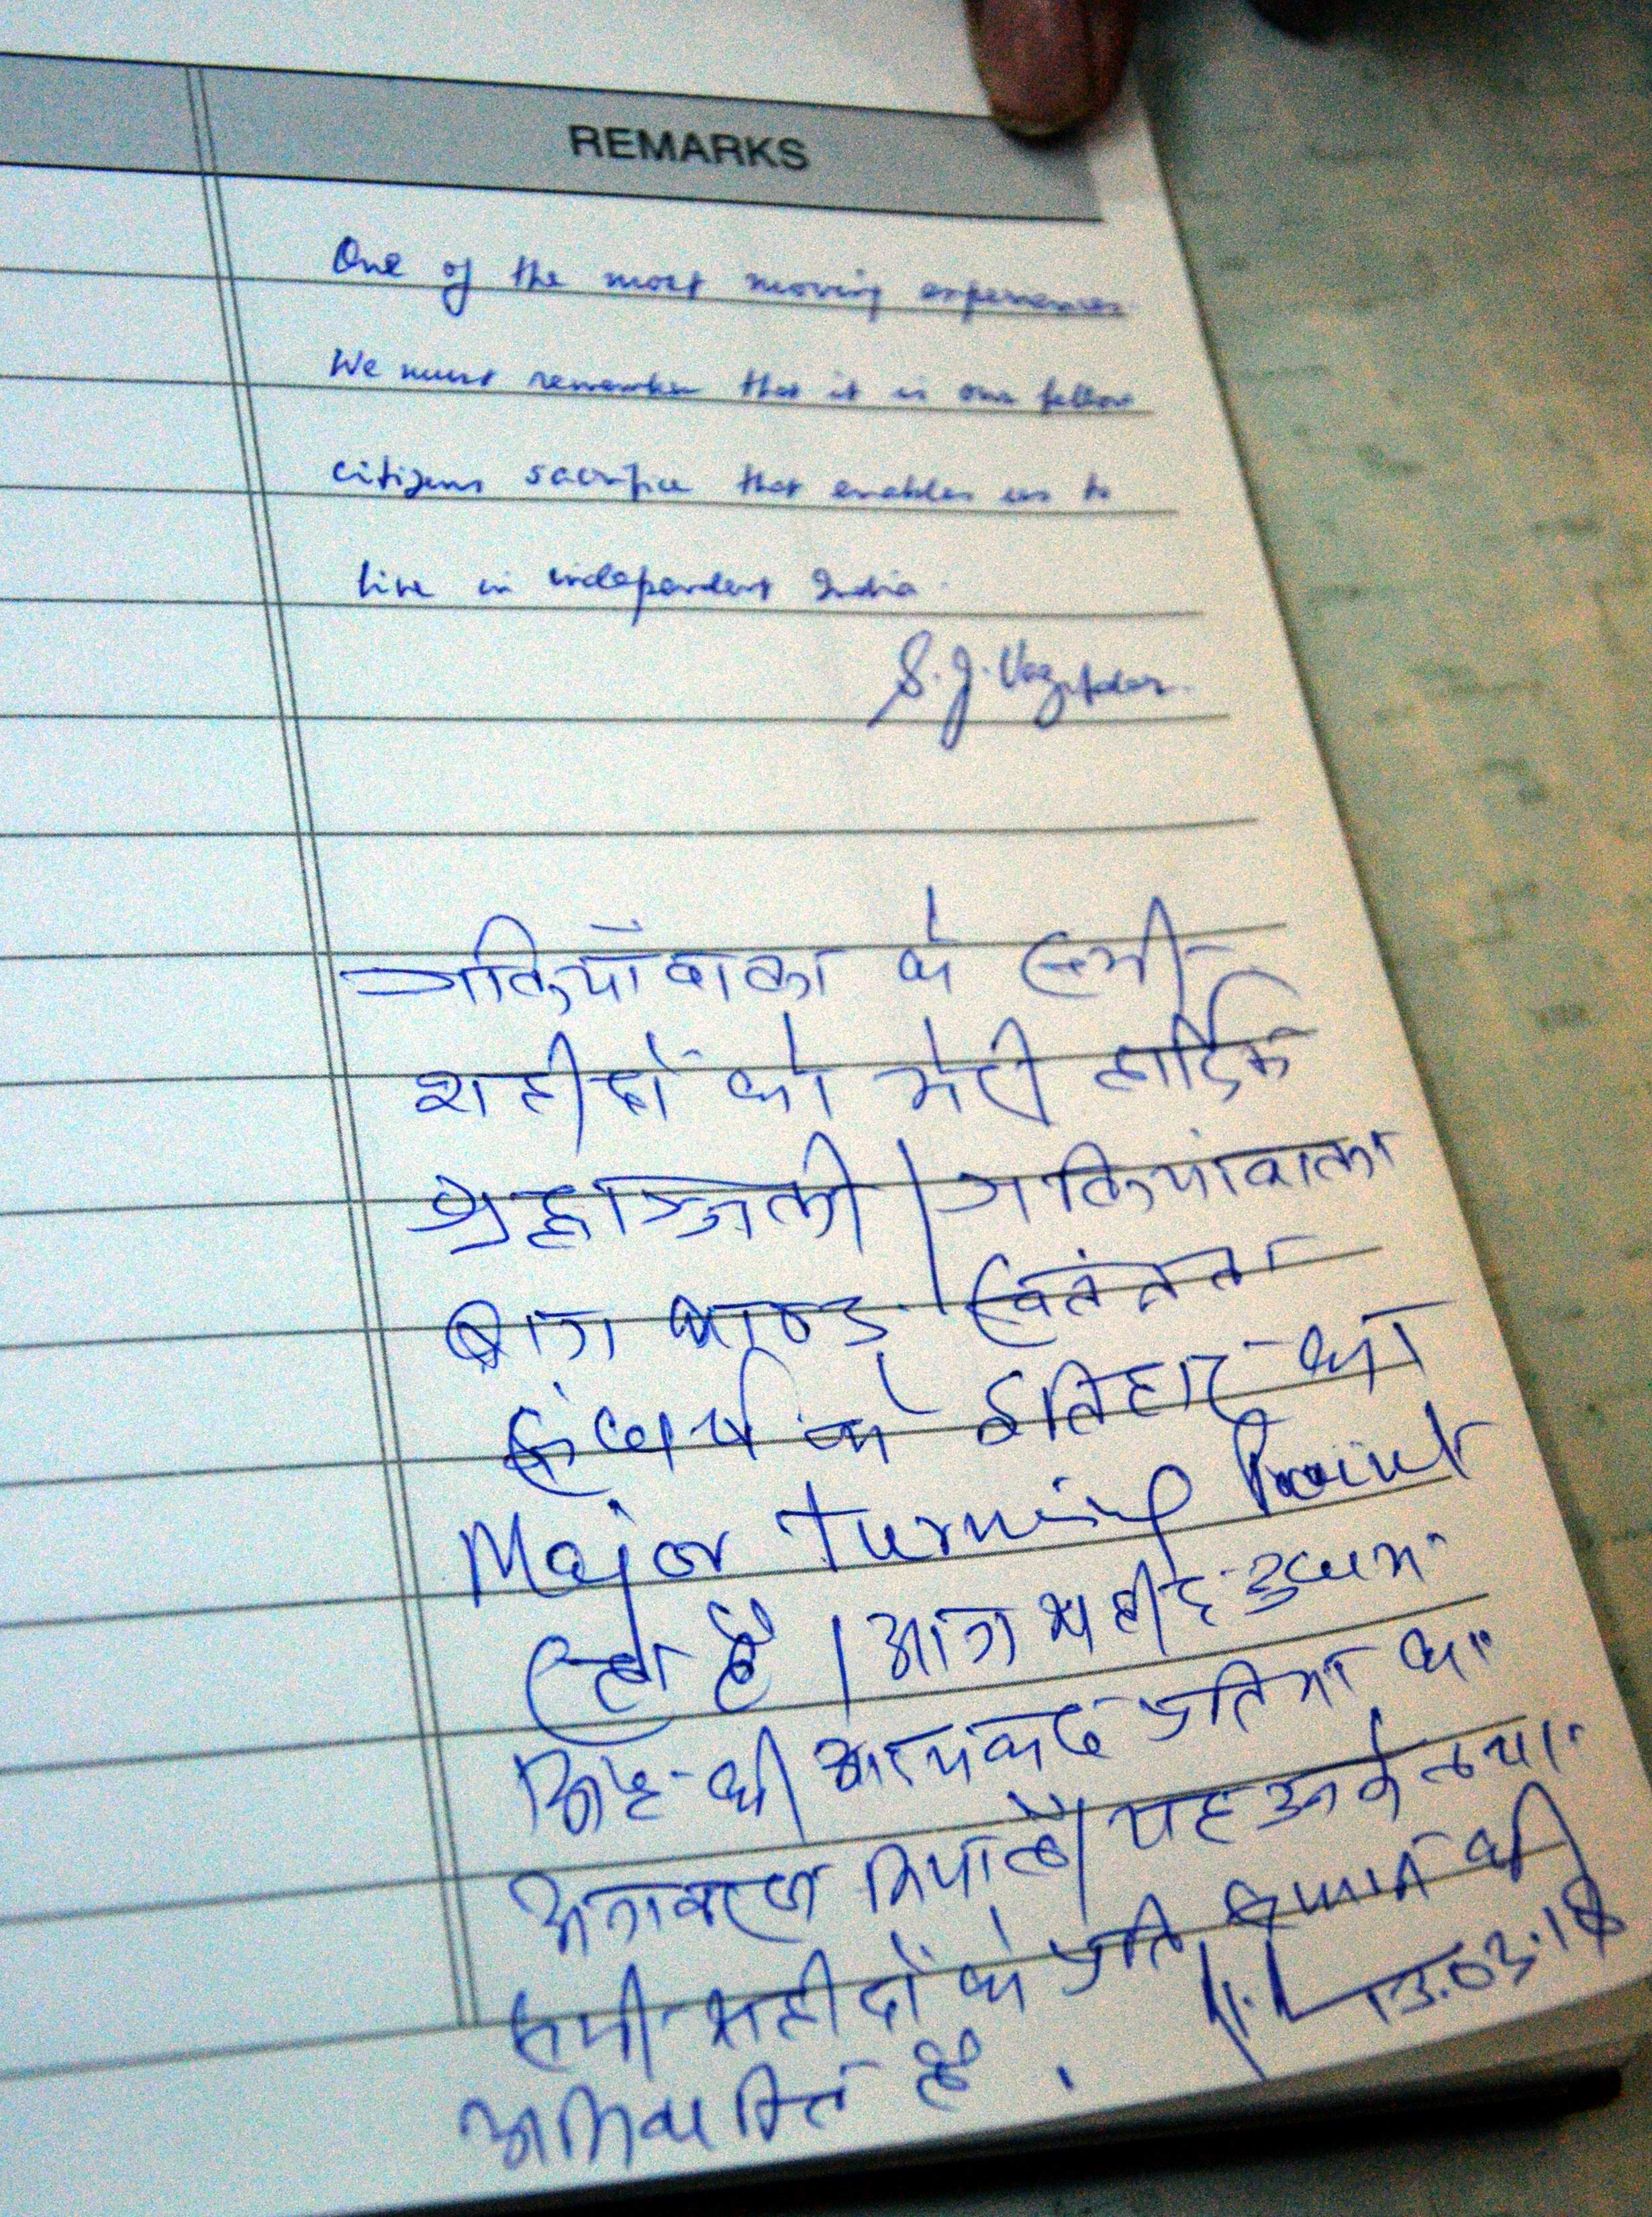 REMARKS
One of the most moving experiences
We must remember that it is our fellow
citizens sacrifice that enables us to
live in independent India.
S. J. Vazifdar
जलियाँवाला के सभी
शहीदों को मेरी हार्दिक
श्रद्धाञ्जली । जलियांवाला
बाग काण्ड स्वतंत्रता
संघर्ष के इतिहास का
Major turning Point
रहा है । आज शहीद उधम
सिंह की आदमकद प्रतिमा का
अनावरण किया है। यह उनके तथा
सभी शहीदों के प्रति सम्मान की
अभिव्यक्ति है .
13.03.18